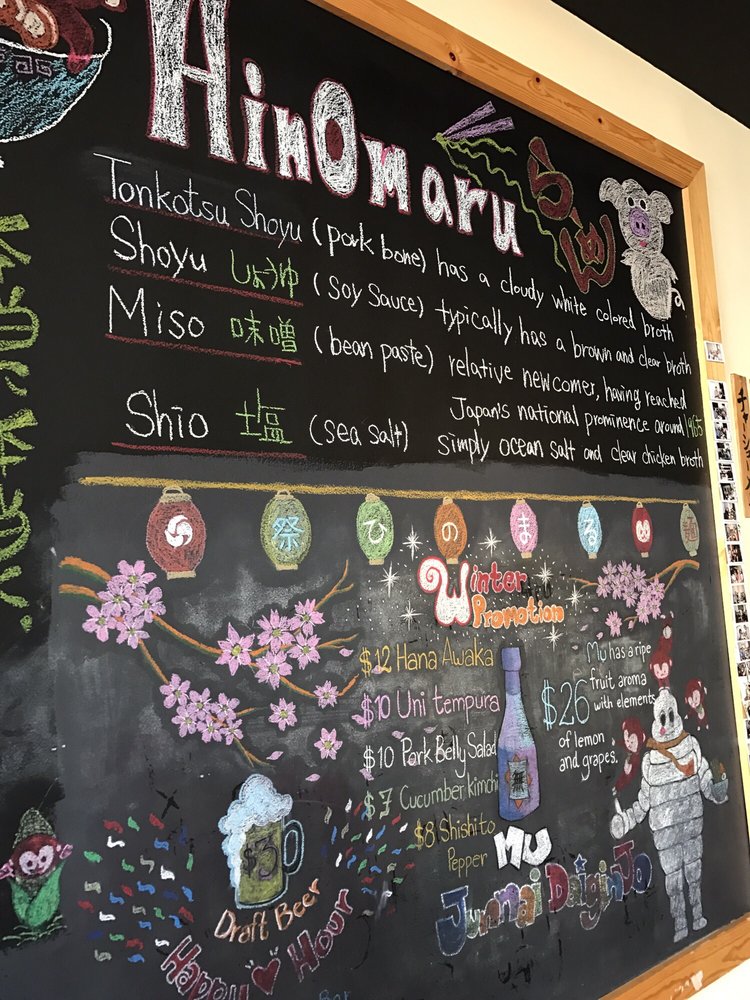 HinOmaru
らーめん
Tonkotsu Shoyu (pork bone) has a cloudy white colored broth
Shoyu しょうゆ (Soy Sauce) typically has a brown and clear broth
Miso 味噌 (bean paste) relative newcomer, having reached
Japan's national prominence around 1965
Shio 塩 (sea salt) simply ocean salt and clear chicken broth
祭 ひ の ま る 麺
Winter
Promotion
$12 Hana Awaka
$10 Uni tempura
$10 Pork Belly Salad
$7 Cucumber kimchi
$8 Shishito
Pepper
Mu has a ripe
fruit aroma
$26 with elements
of lemon
and grapes.
無
MU
Junmai DaiginJo
$3
Draft Beer
Happy Hour